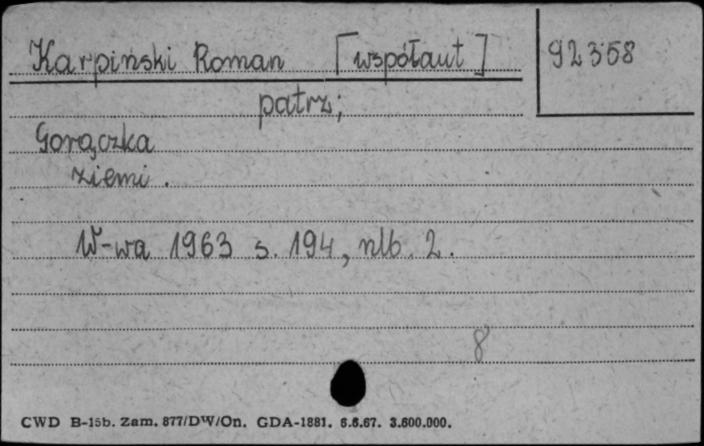 Karpiński Roman [współaut] 92358
patrz;
Gorączka
ziemi.
W-wa 1963 s. 194, nlb. 2.
8
CWD B-15b. Zam. 877/DW/On. GDA-1881. 6.6.67. 3.600.000.